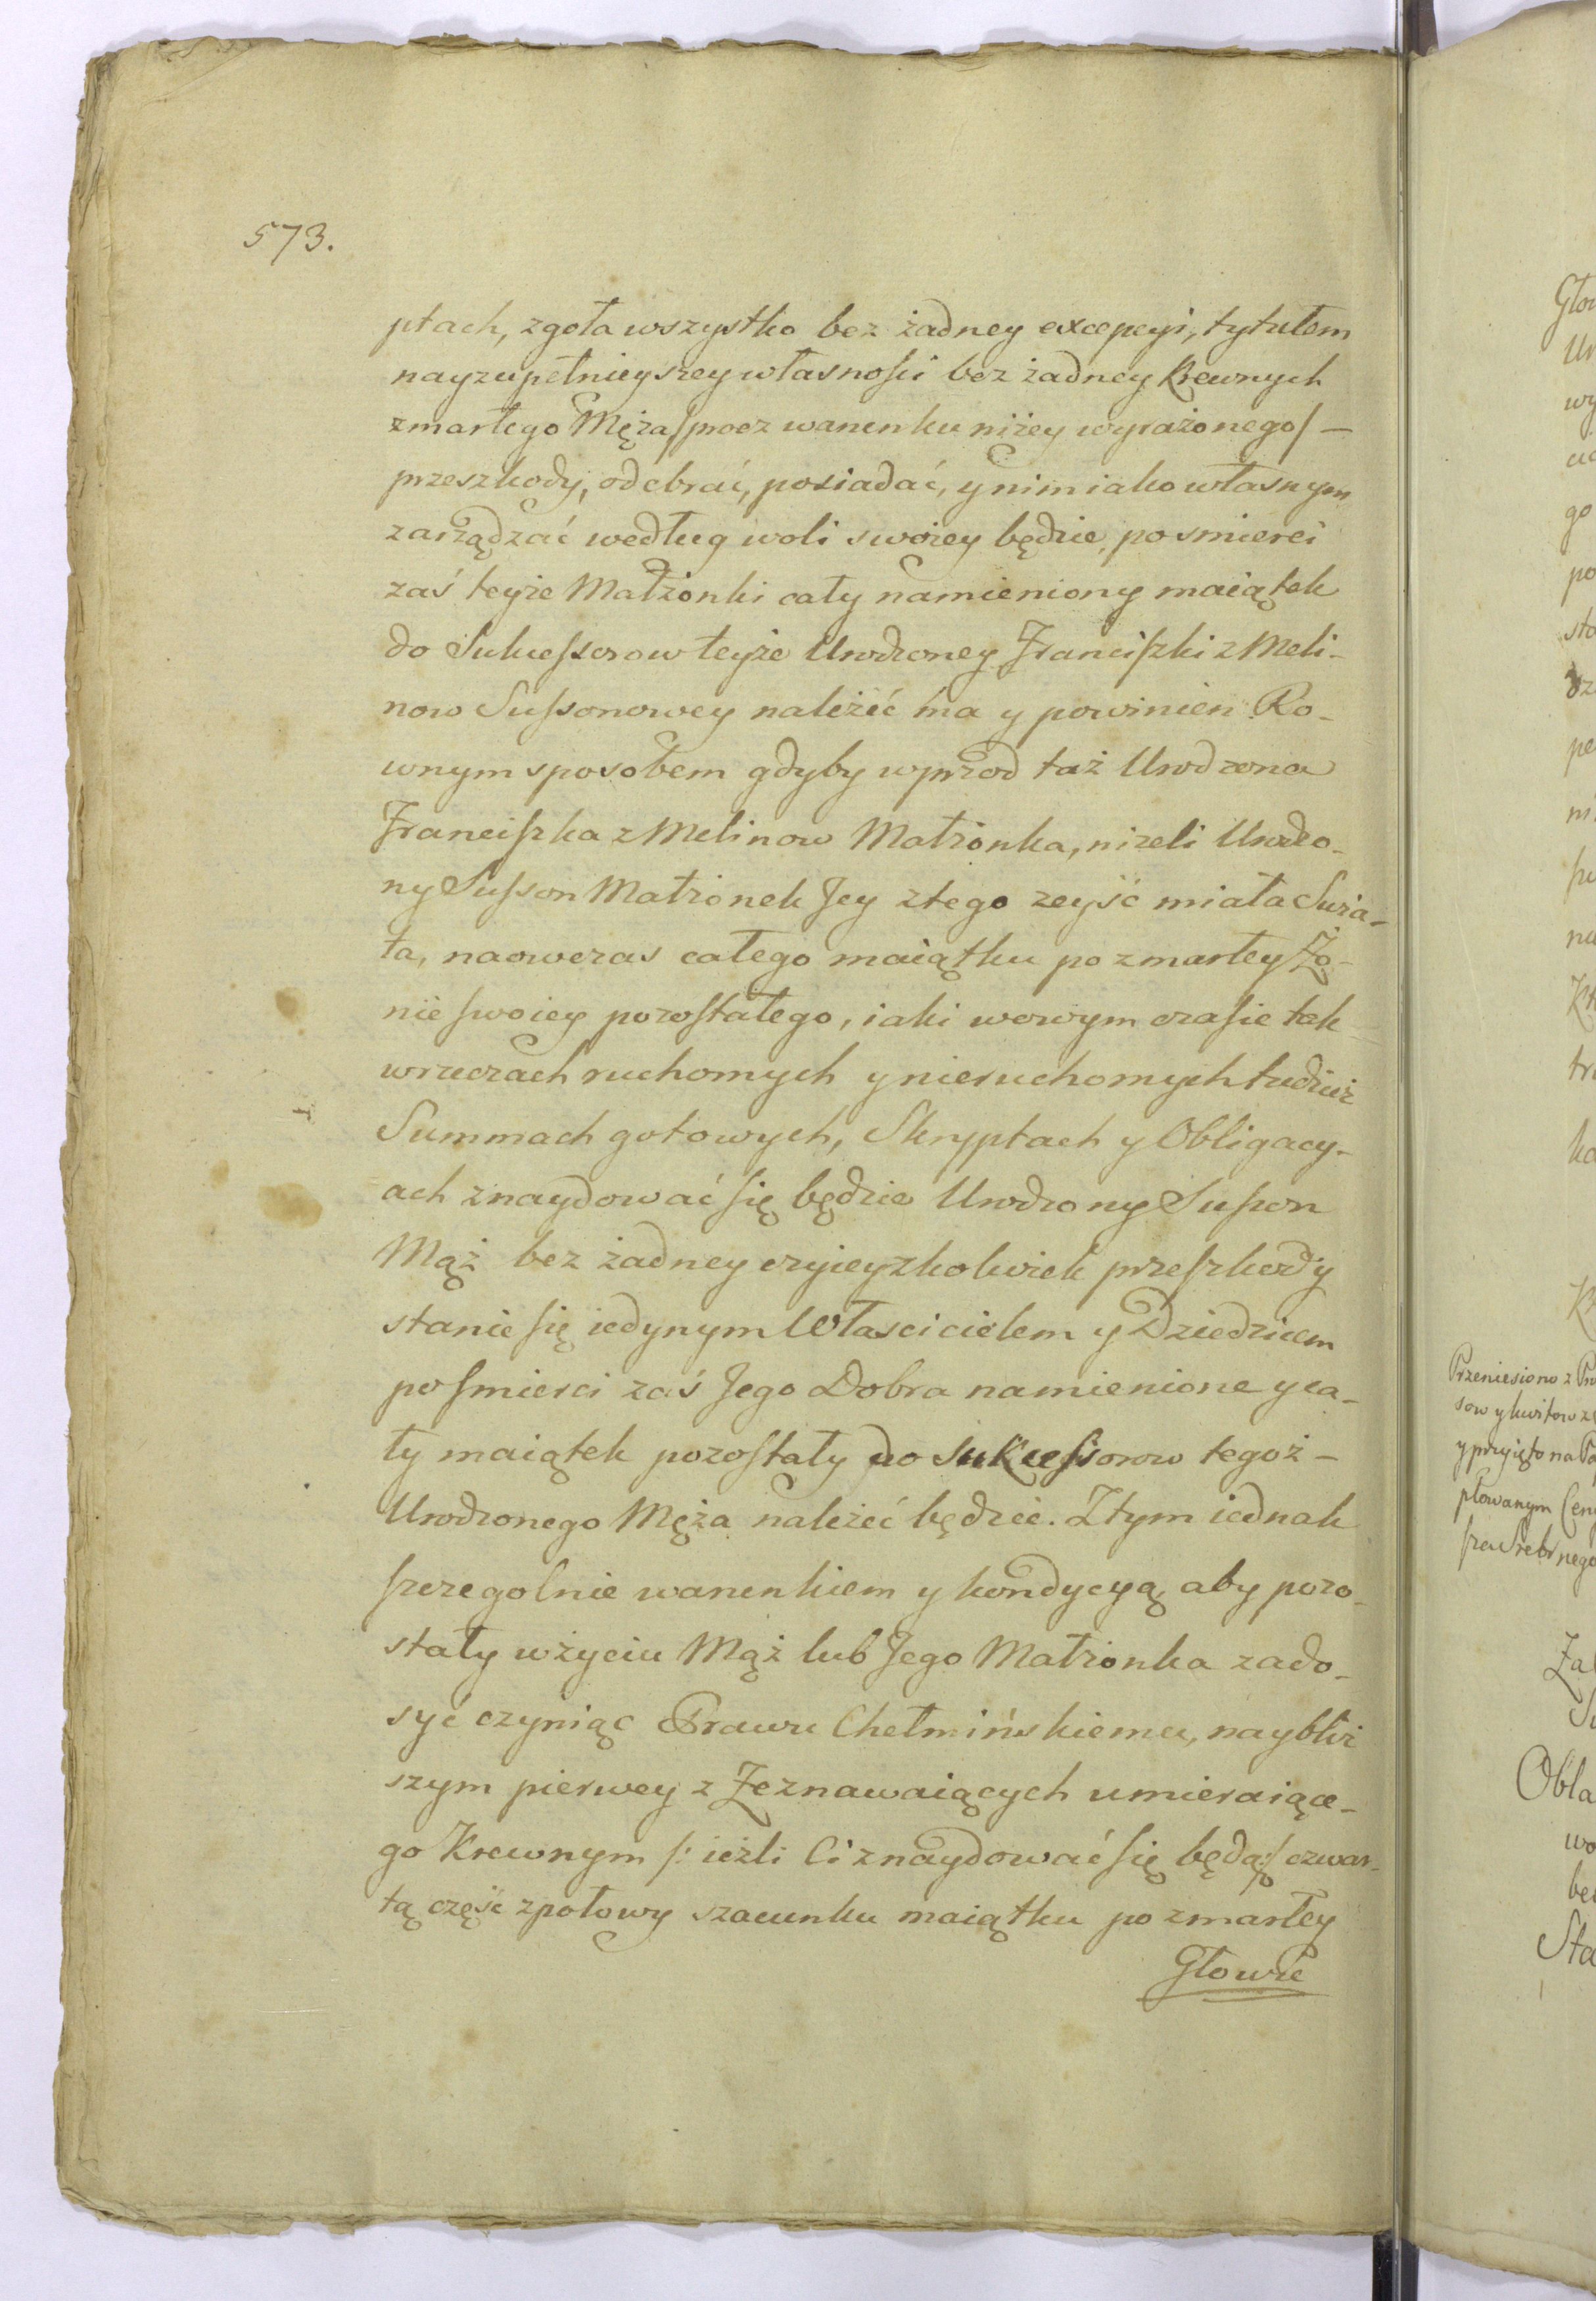 573.
ptach, zgoła wszystko bez żadney excepcyi, tytułem
nayzupełnieyszey własności bez żadney Krewnych
zmarłego Męża /:procz warunku niżey wyrażonego/ —
przeszkody, odebrać, posiadać, y nim iako własnym
zarządzać według woli swoiey będzie, po smierci
zaś teyże Małżonki cały namieniony maiątek
do Sukcessorow teyże Urodzoney Franciszki z Meli-
now Sussonowey należeć ma y powinien. Ro-
wnym sposobem gdyby wprzod taż Urodzona
Franciszka z Melinow Małżonka, niżeli Urodzo-
ny Susson Małżonek Jey z tego zeyść miała Swia-
ta, naowczas całego maiątku po zmarłey Żo-
nie swoiey pozostałego, iaki w owym czasie tak
w rzeczach ruchomych y nieruchomych tudzież
Summach gotowych, Skryptach y Obligacy-
ach znaydować się będzie Urodzony Susson
Mąż bez żadney czyieyzkolwiek przeszkody
stanie się iedynym Włascicielem y Dziedzicem
po smierci zaś Jego Dobra namienione y ca-
ły maiątek pozostały do Sukcessorow tegoż —
Urodzonego Męża należeć będzie. Z tym iednak
szczegolnie warunkiem y kondycyą, aby pozo-
stały w życiu Mąż lub Jego Małżonka zado-
syć czyniąc Prawu Chełmińskiemu, naybliż
szym pierwey z Zeznawaiących umieraiące-
go Krewnym /: ieżli Ci znaydować się będą:/ czwar-
tą część z połowy szacunku maiątku po zmarłey
Głowie
Przeniesiono z
sow y kwitow
y przyięto na
płowanym
Srebrnego
Obla